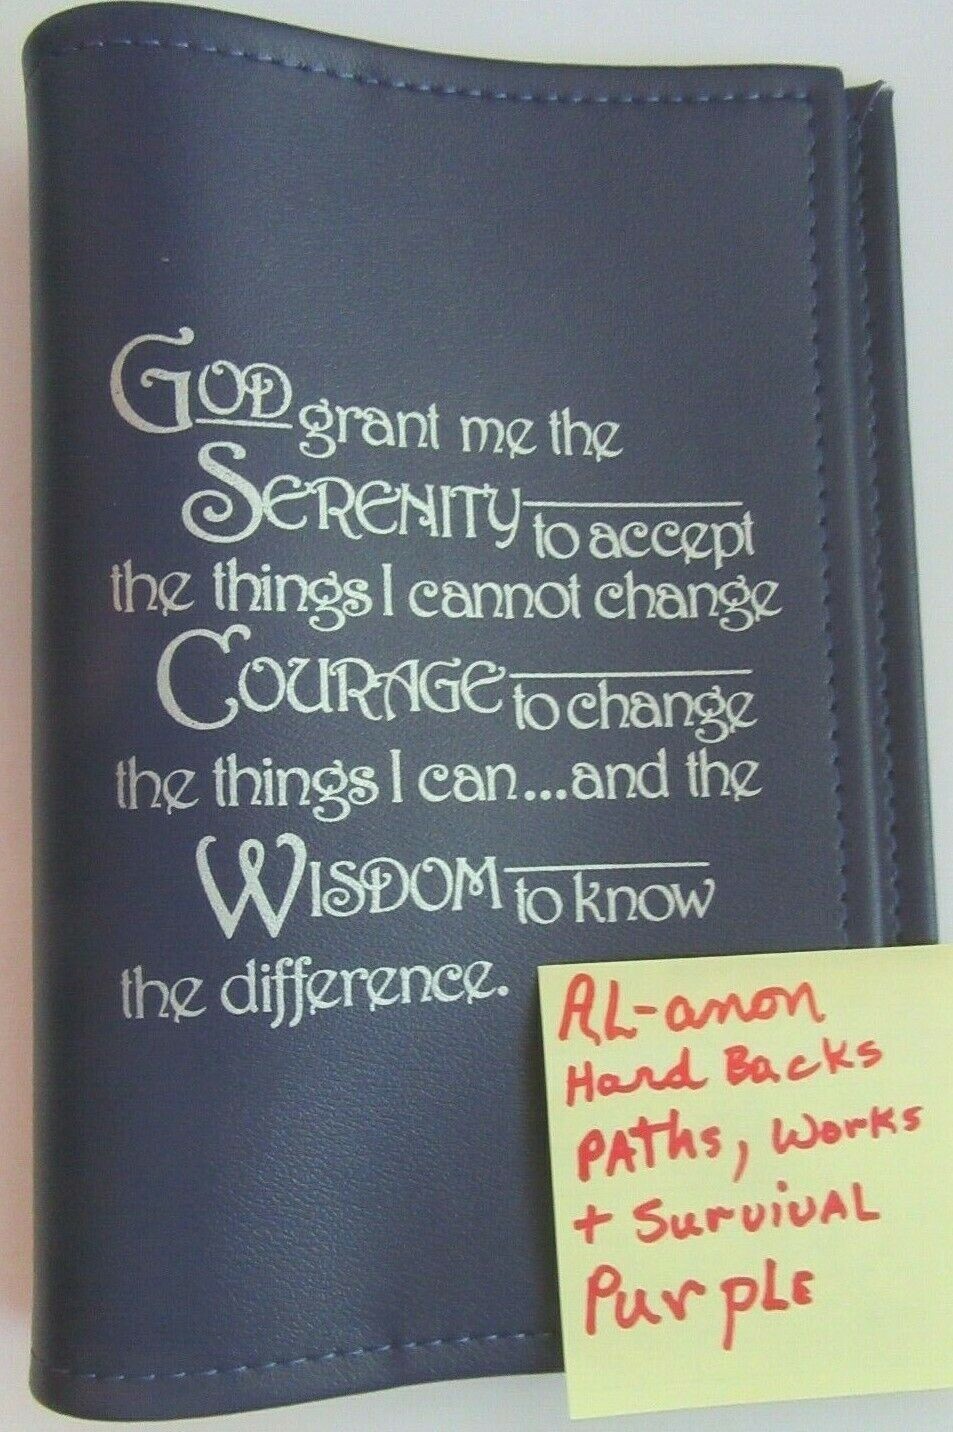 GOD grant me the
SERENITY to accept
the things I cannot change
COURAGE to change
the things I can...and the
WISDOM to know
the difference.
AL-anon
Hard Backs
PATHs, Works
+ SurvivAL
PurpLE